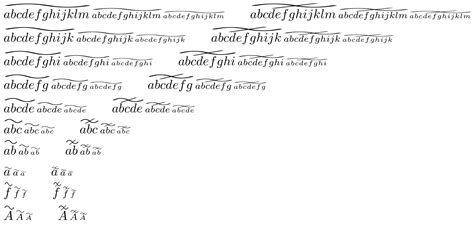 abcdefghijklm abcdefghijklm abcdefghijklm abcdefghijklm abcdefghijklm abcdefghijklm
abcdefghijk abcdefghijk abcdefghijk abcdefghijk abcdefghijk abcdefghijk
abcdefghi abcdefghi abcdefghi abcdefghi abcdefghi abcdefghi
abcdefg abcdefg abcdefg abcdefg abcdefg abcdefg
abcde abcde abcde abcde abcde abcde
abc abc abc abc abc abc
ab ab ab ab ab ab
ã ã ã ã ã ã
f̃ f̃ f̃ f̃ f̃ f̃
Ã Ã Ã Ã Ã Ã